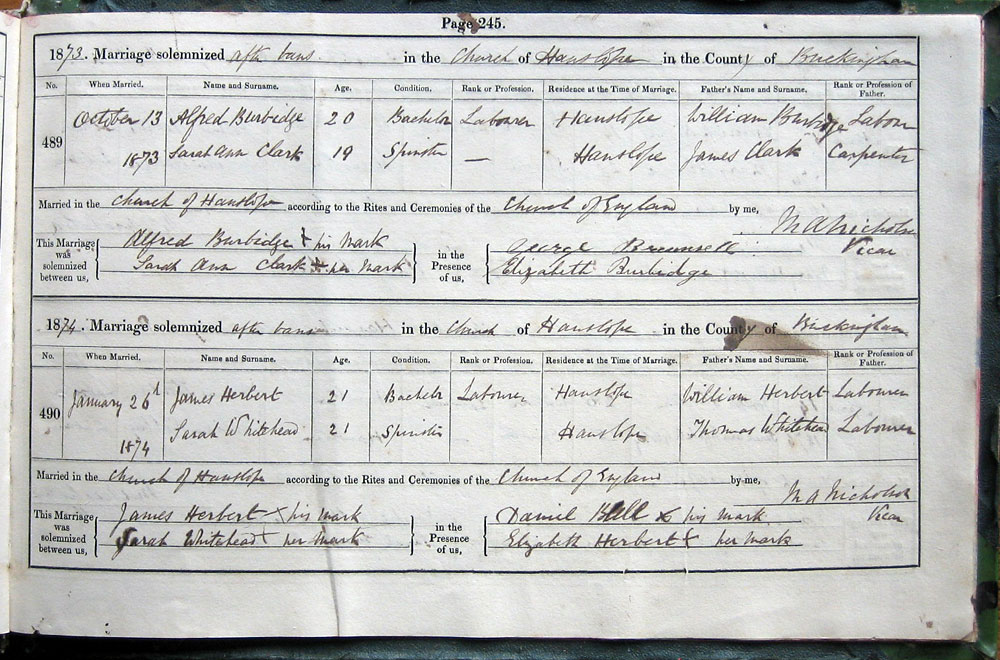 Page 245.
1873. Marriage solemnized after bans in the Church of Hanslope in the County of Buckingham
No. When Married. Name and Surname. Age. Condition. Rank or Profession. Residence at the Time of Marriage. Father's Name and Surname. Rank or Profession of Father.
489 October 13 Alfred Burbidge 20 Bachelor Labourer Hanslope William Burbidge Labour
1873 Sarah Ann Clark 19 Spinster — Hanslope James Clark Carpenter
Married in the Church of Hanslope according to the Rites and Ceremonies of the Church of England by me,
M A Nicholson
Vicar
This Marriage was solemnized between us, Alfred Burbidge + his Mark in the Presence of us, George
Sarah Ann Clark + her Mark Elizabeth Burbidge
1874. Marriage solemnized after bans in the Church of Hanslope in the County of Buckingham
No. When Married. Name and Surname. Age. Condition. Rank or Profession. Residence at the Time of Marriage. Father's Name and Surname. Rank or Profession of Father.
490 January 26th James Herbert 21 Bachelor Labourer Hanslope William Herbert Labourer
1874 Sarah Whitehead 21 Spinster Hanslope Thomas Whitehead Labourer
Married in the Church of Hanslope according to the Rites and Ceremonies of the Church of England by me,
M A Nicholson
Vicar
This Marriage was solemnized between us, James Herbert x his Mark in the Presence of us, Daniel Bell x his Mark
Sarah Whitehead x her Mark Elizabeth Herbert x her Mark